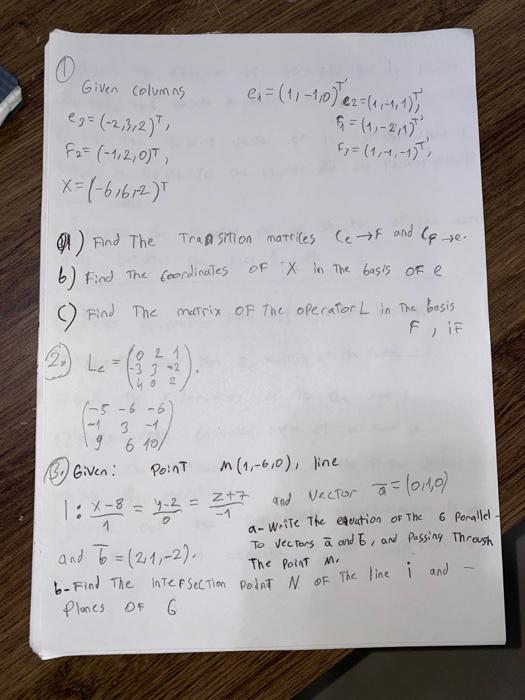 ①
Given columns e₁=(1,-1,0)ᵀ, e2=(1,-1,1)ᵀ,
e3=(-2,3,2)ᵀ, F1=(1,-2,1)ᵀ,
F2=(-1,2,0)ᵀ, F3=(1,-1,-1)ᵀ,
X=(-6,6,-2)ᵀ
a) Find The Transition matrices Ce→F and CF→e.
b) Find The Coordinates OF X in The basis OF e
c) Find The matrix OF The operator L in The basis
F, iF
2. Le = (0 2 1
-3 3 -2
4 0 2).
(-5 -6 -6
-1 3 -1
9 6 10)
3. Given: Point M(1,-6,0), line
l: x-8/1 = y-2/0 = z+7/-1 and vector a̅=(0,1,0)
and b̅=(2,1,-2).
a- Write The equation OF The 6 Parallel-
To vectors a̅ and b̅, and Passing Through
The Point M.
b- Find The intersection Point N OF The line i and -
Planes OF 6